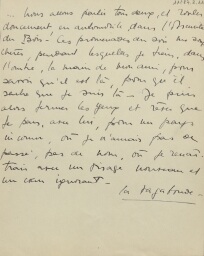 nous avons
doucement en automobile dans
du Bois! Ces promenades du soir me sont
chères, pendant lesquelles je tiens, dans
l'autre, la main de mon ami, pour
savoir qu'il est là, pour qu'il
sache que je suis là - Je puis
alors fermer les yeux et rêver que
je pars, avec lui, pour un pays
inconnu, où je n'aurais pas de
passé, pas de nom, où je renaî-
trais avec un visage nouveau et
un cœur ignorant -
la Vagabonde -